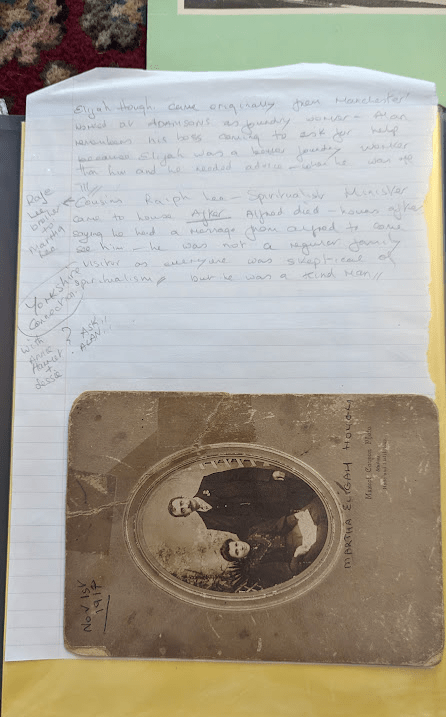 Elijah Hough came originally from Manchester
worked at ADAMSONS as foundry worker - Alan
remembers his boss coming to ask for help
because Elijah was a better foundry worker
than him and he needed advice - when he was off
ill //
Cousin Ralph Lee - Spiritualist Minister
came to house After Alfred died - hours after
saying he had a message from alfred to come
see him - he was not a regular family
visitor as everyone was skeptical of
spiritualism // but he was a kind man //
Lee
brother
to
Martha
Lee
Yorkshire
Connection
with
Annie
Harriet
+
Jessie
? Ask!!
ALAN!!
Nov 1st
1917
MARTHA ELIJAH HOUGH